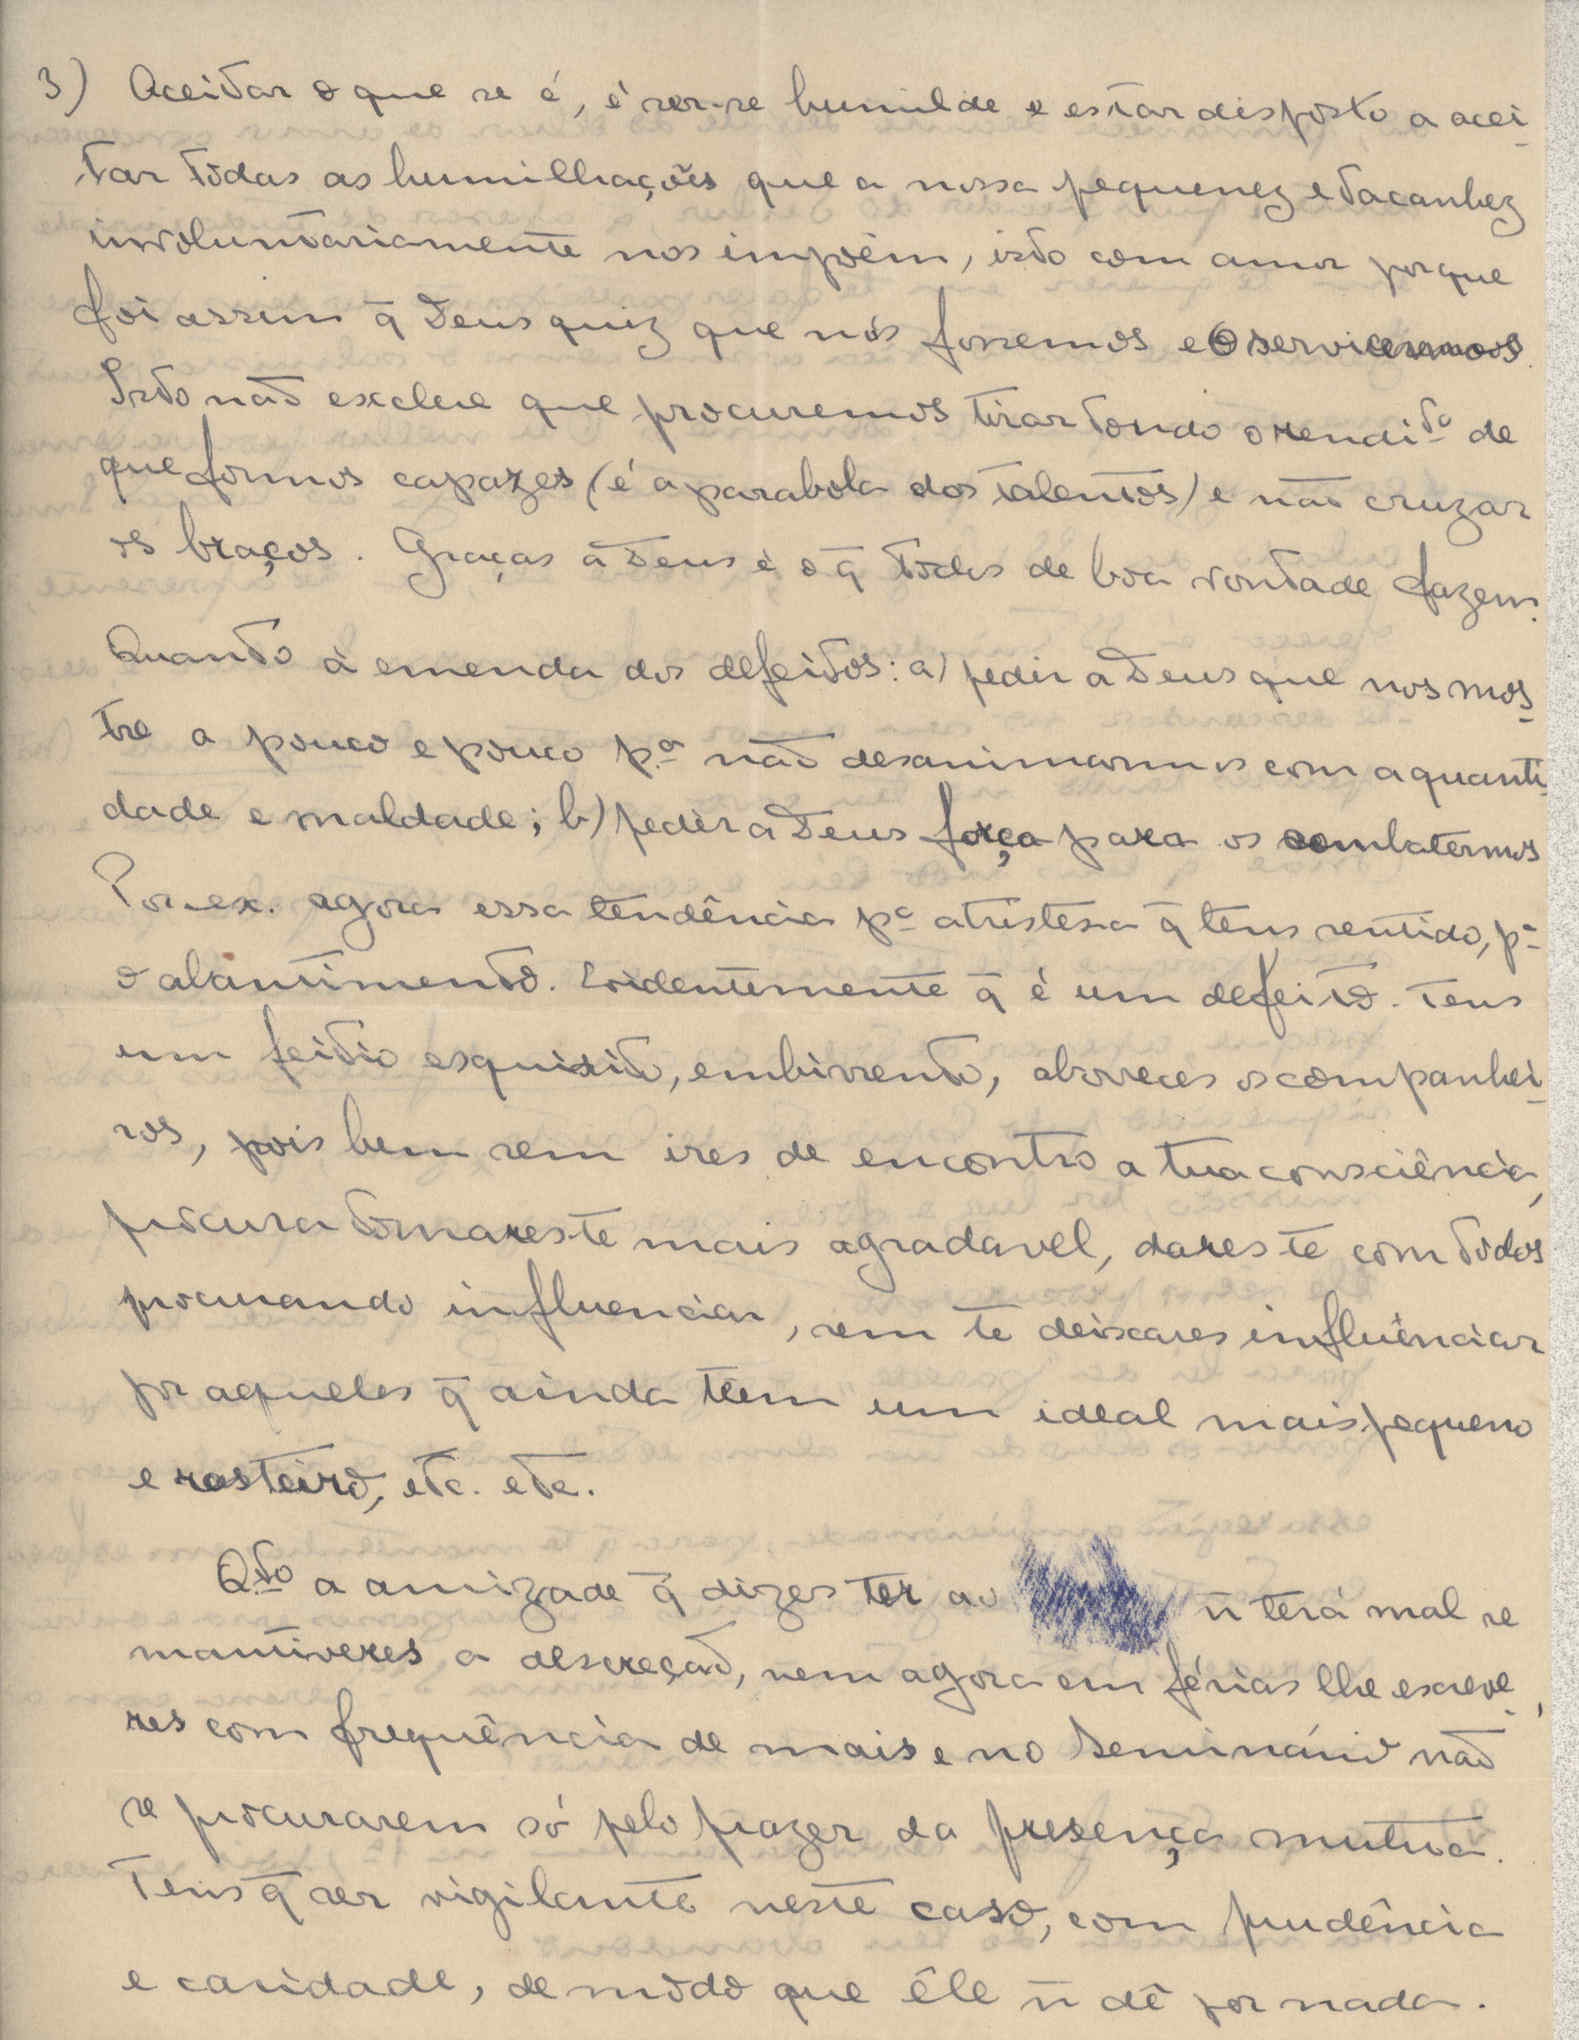 3) Aceitar o que se é, é ser-se humilde e estar disposto a acei-
tar tôdas as humilhações que a nossa pequenez e tacanhez
involuntariamente nos impõem, isto com amor porque
foi assim q̄ Deus quiz que nós fossemos e O servissemos.
Isto não exclue que procuremos tirar tôndo o rendi.to de
que formos capazes (é a parabola dos talentos) e não cruzar
os braços. Graças a Deus é o q̄ todos de boa vontade fazem.
Quanto à emenda dos defeitos: a) pedir a Deus que nos mos-
tre a pouco e pouco p.a não desanimarmos com a quanti-
dade e maldade; b) pedir a Deus fôrça para os combatermos
Por ex. agora essa tendência p.a a tristesa q̄ tens sentido, p.a
o abatimento. Evidentemente q̄ é um defeito. Tens
um feitio esquisito, embirrento, aborreces os companhei-
ros, pois bem sem ires de encontro a tua consciência,
procura tornares-te mais agradavel, dares-te com todos
procurando influenciar, sem te deixares influênciar
por aqueles q̄ ainda têem um ideal mais pequeno
e rasteiro, etc. etc.
Q.to a amizade q̄ dizes ter ao ñ terá mal se
mantiveres a descreção, nem agora em férias lhe escreve-
res com frequência de mais e no Seminário não
se procurarem só pelo prazer da presença mutua.
Tens q̄ ser vigilante neste caso, com prudência
e caridade, de modo que êle ñ dê por nada.